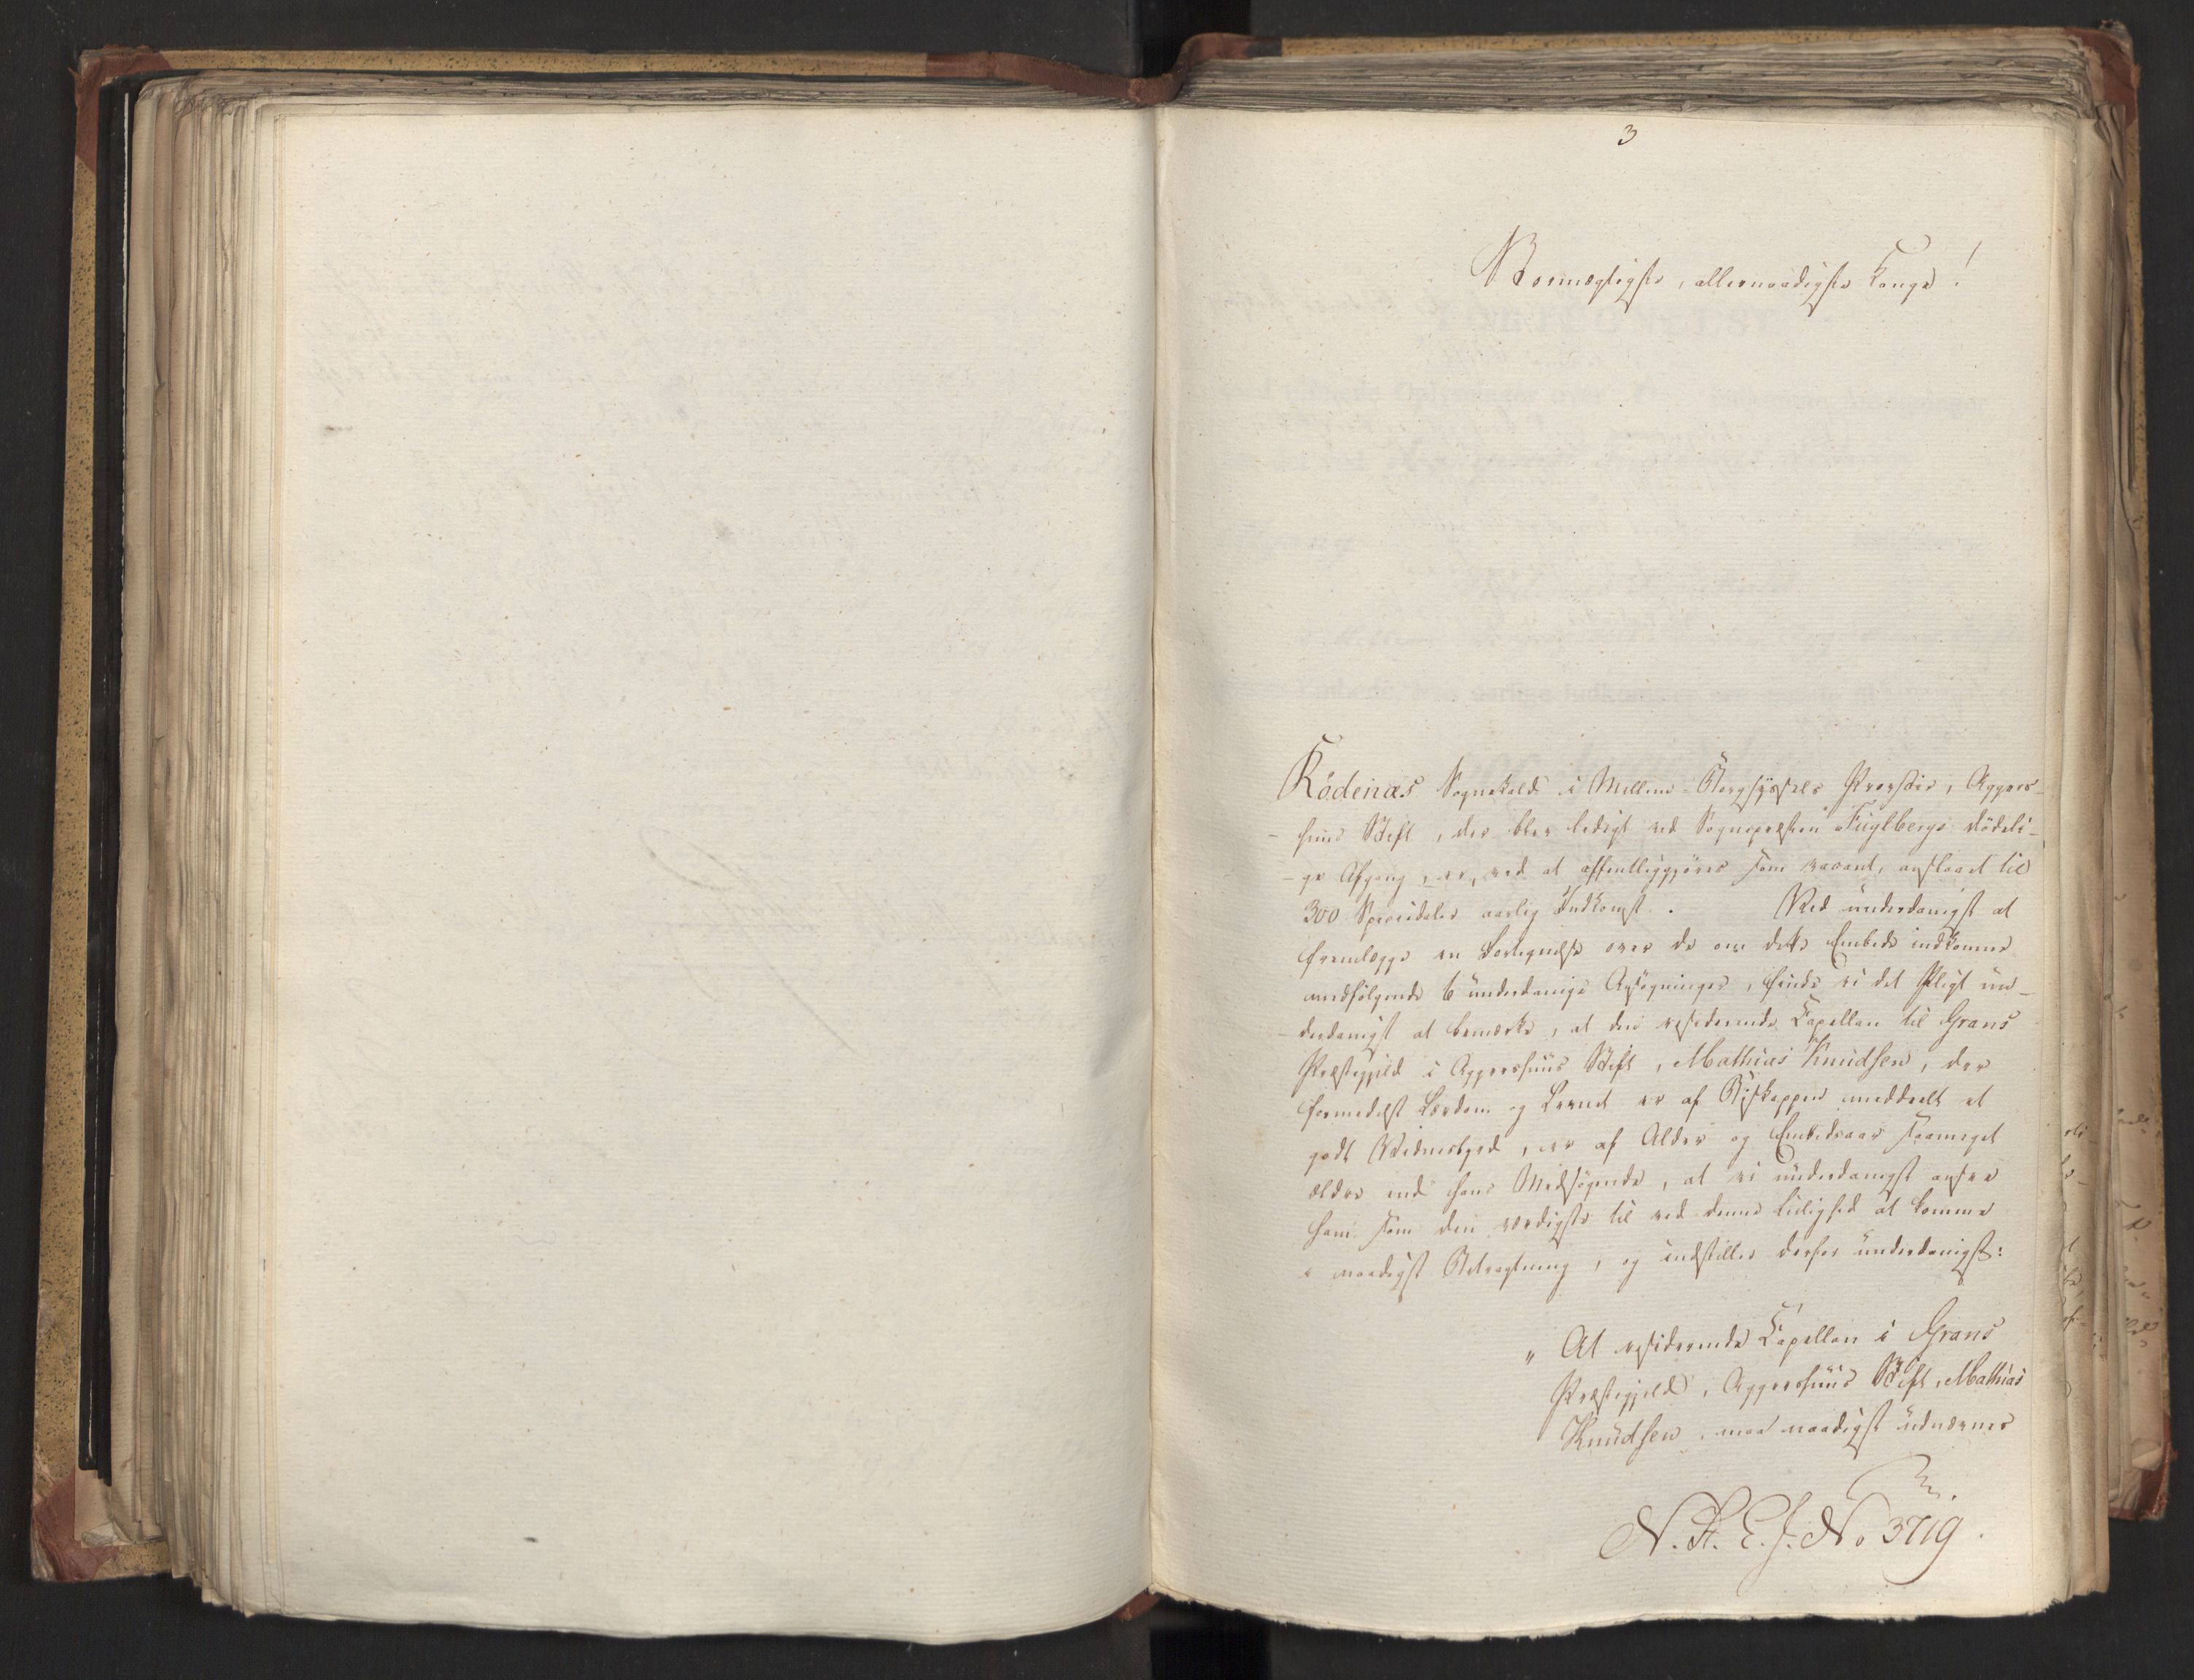 3
Stormægtigste, allernaadigste Konge!
Rödenæs Sognekald i Mellem-Borgesyssels Provstie, Aggers-
-huus Stift, der blev ledigt ved Sognepræsten Fuglbergs dödeli-
-ge Afgang, er, ved at offentliggjöres som vacant, anslaaet til
300 Speciedaler aarlig Indkomst. Ved underdanigst at
fremlægge en Fortegnelse over de om dette Embede indkomne
medfölgende 6 underdanige Ansögninger, finde vi det Pligt un-
-derdanigst at bemærke, at den residerende Capellan til Grans
Præstegjeld i Aggershuus Stift, Mathias Knudsen, der
formedelst Lærdom og Levnet er af Biskoppen meddeelt et
godt Vidnesbyrd, er af Alder og Embedsaar saameget
ældre end hans Medsögende, at vi underdanigst ansee
ham som den værdigste til ved denne Leilighed at komme
i naadigst Betragtning, og indstiller derfor underdanigst:
" At residerende Capellan i Grans
Præstegjeld, Aggershuus Stift, Mathias
Knudsen, maa naadigst udnævnes
N. R. E. J. No 3719.